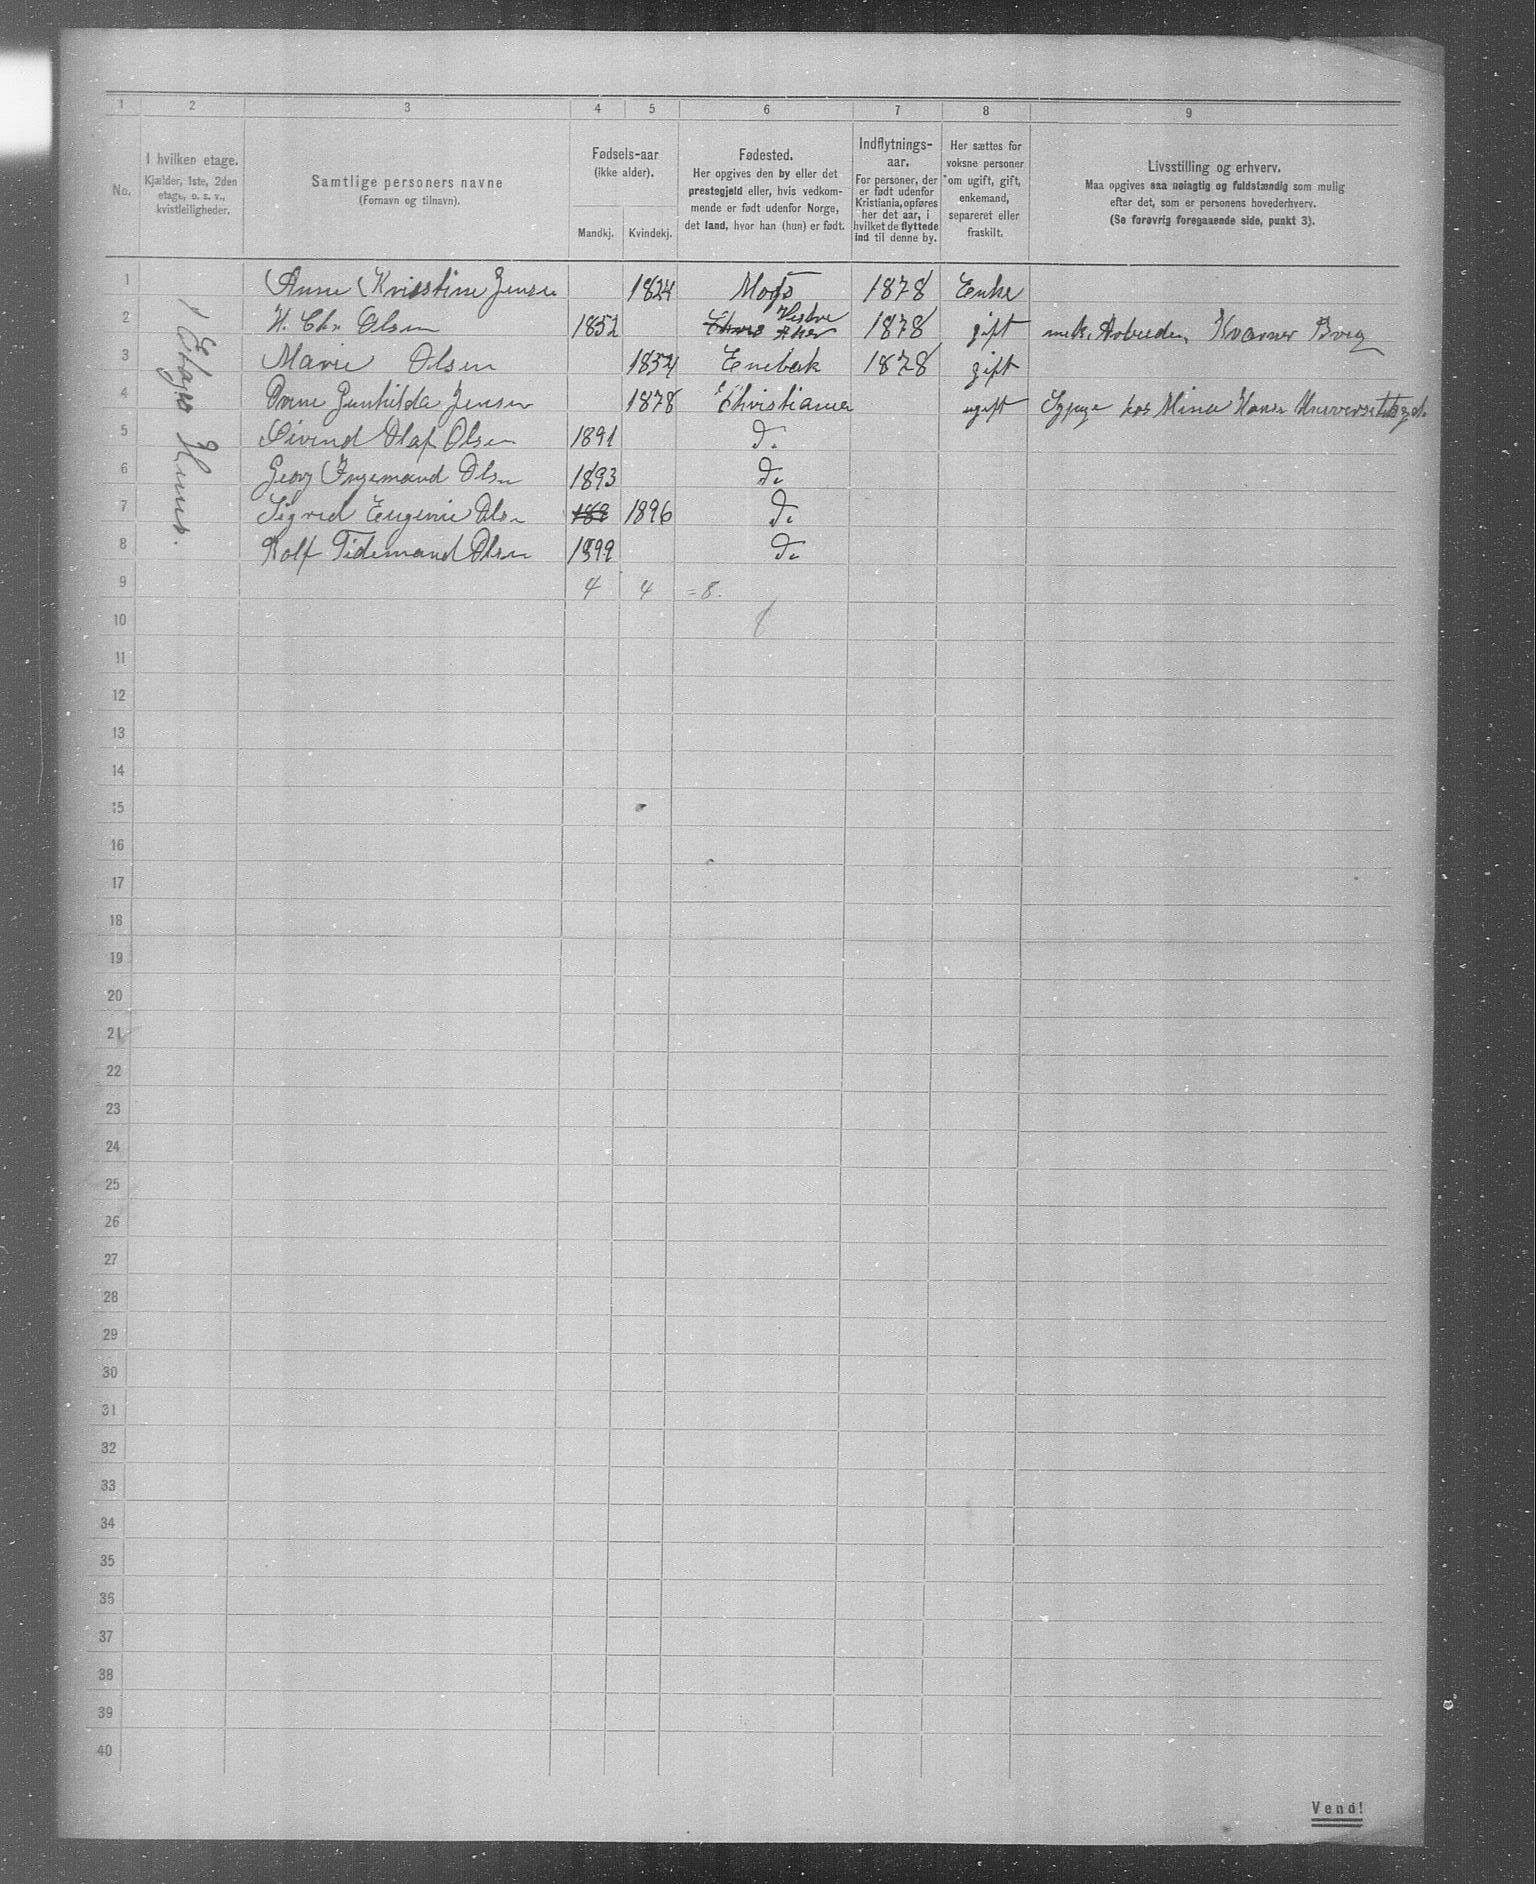 1 2 3 4 5 6 7 8 9
No.
I hvilken etage.
Kjælder, 1ste, 2den
etage, o. s. v.,
kvistleiligheder.
Samtlige personers navne
(Fornavn og tilnavn).
Fødsels-aar
(ikke alder).
Mandkj. Kvindekj.
Fødested.
Her opgives den by eller det
prestegjeld eller, hvis vedkom-
mende er født udenfor Norge,
det land, hvor han (hun) er født.
Indflytnings-
aar.
For personer, der
er født udenfor
Kristiania, opføres
her det aar, i
hvilket de flyttede
ind til denne by.
Her sættes for
voksne personer
om ugift, gift,
enkemand,
separeret eller
fraskilt.
Livsstilling og erhverv.
Maa opgives saa nøiagtig og fuldstændig som mulig
efter det, som er personens hovederhverv.
(Se forøvrig foregaaende side, punkt 3).
1 Etage Huus.
1 Anne Kristine Jensen 1824 Moss 1878 Enke
2 H. Chr Olsen 1852 Vestre Aker 1878 gift mek. Arbeider, Kværner Brug
3 Marie Olsen 1854 Enebak 1878 gift
4 Gunhilda Jensen 1878 Christiania ugift Sypige hos Mina Hansen Universitetsgd.
5 Øivind Olaf Olsen 1891 do
6 Georg Ingemand Olsen 1893 do
7 Sigrid Eugenie Olsen 189 1896 do
8 Rolf Tidemand Olsen 1899 do
9 4 4 = 8.
10 8
11
12
13
14
15
16
17
18
19
20
21
22
23
24
25
26
27
28
29
30
31
32
33
34
35
36
37
38
39
40
Vend!